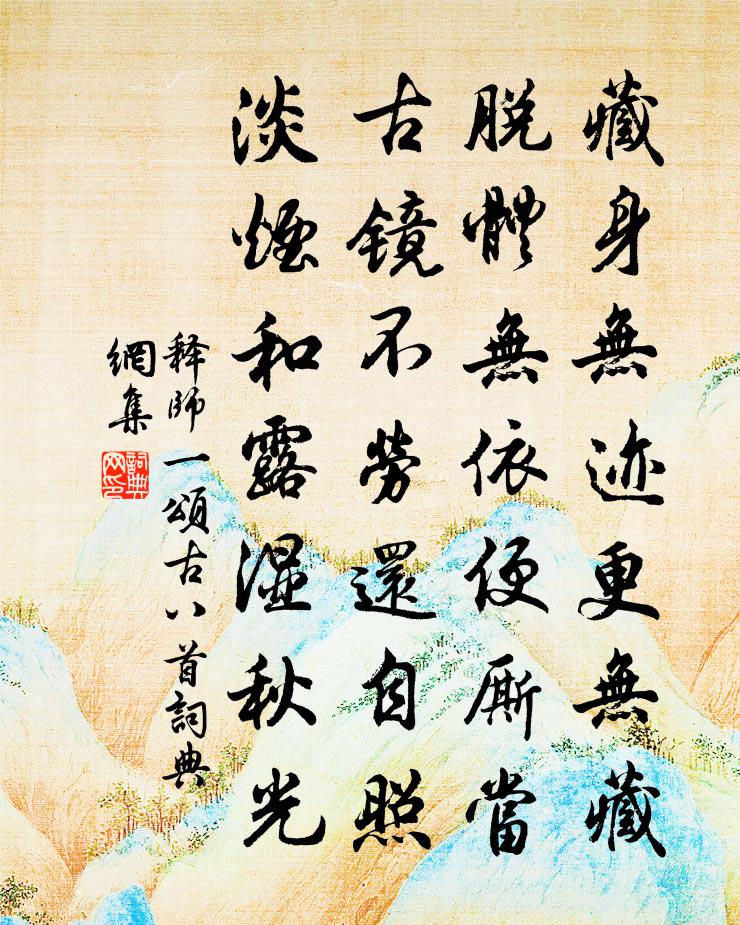 藏身無迹更無藏
脫體無依便厮當
古鏡不勞還自照
淡煙和露湿秋光
释師一頌古八首詞典
網集
詞典网印